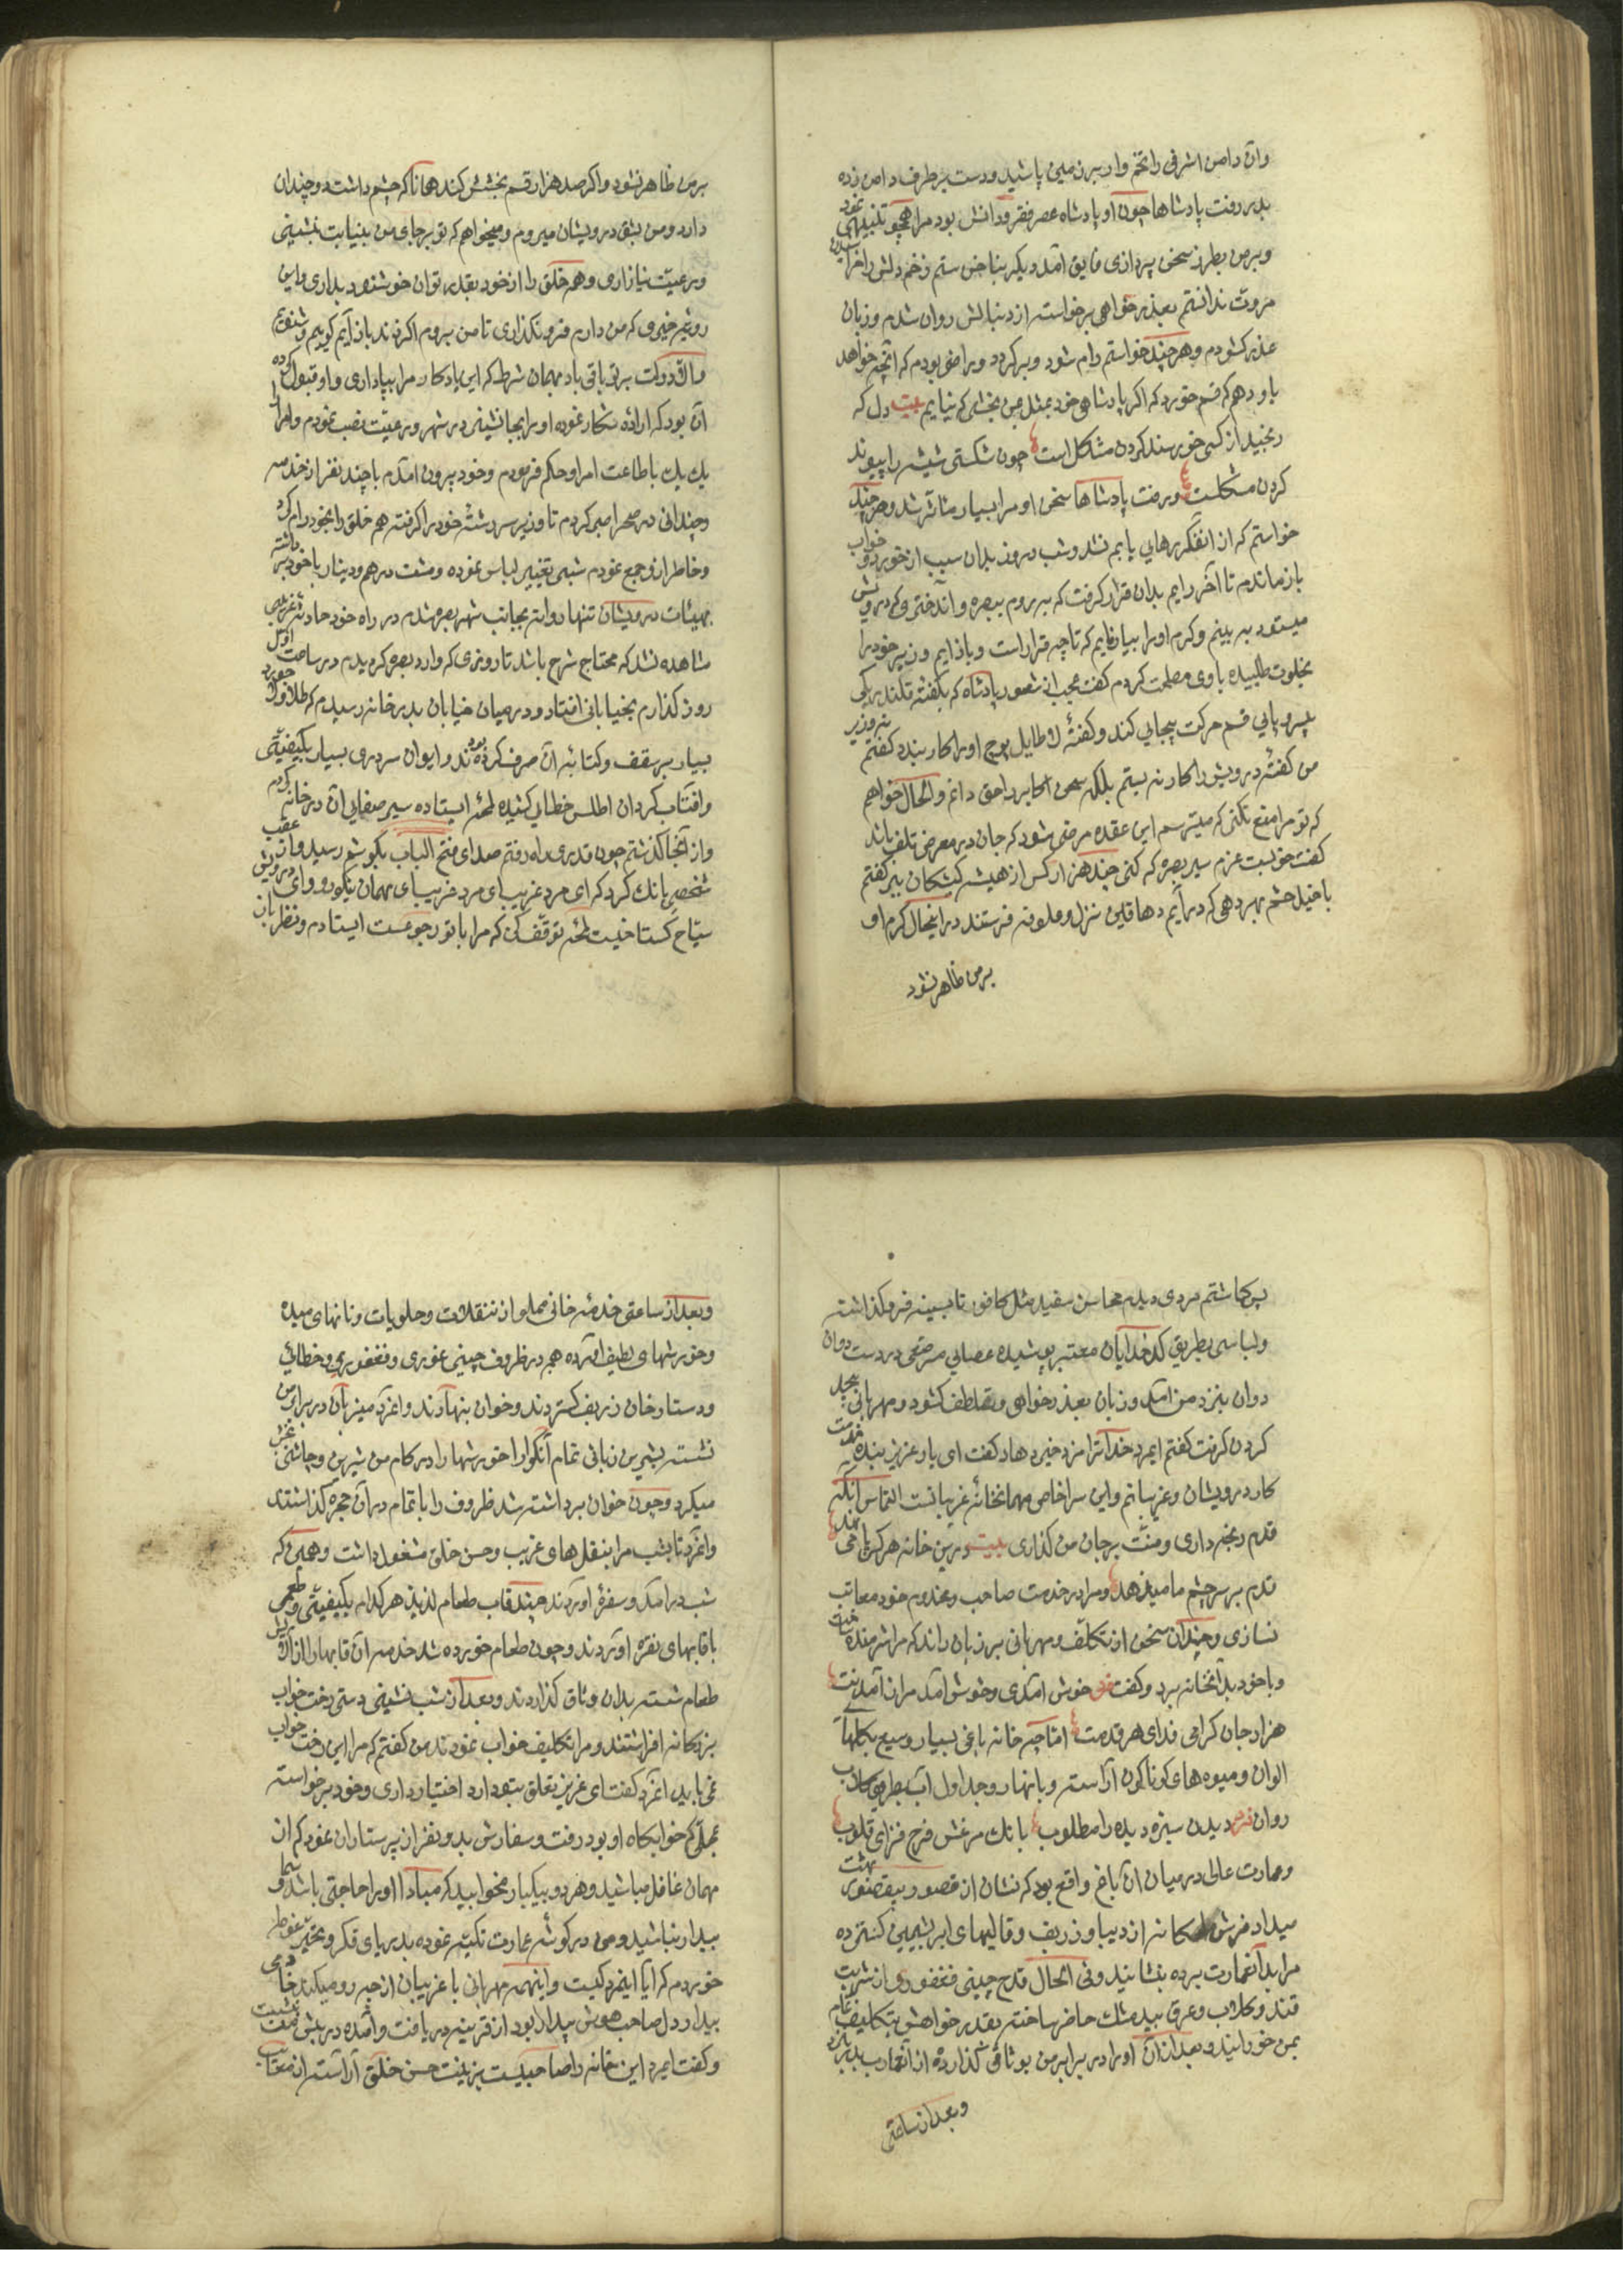 وآن دامن اشرفی را تخم وار بر زمین پاشید و دست بر طرف دامن زده
بدر رفت پادشاها چون او پادشاه عصر فقر و دانش بود مرا همچو تنبیهی نمود
و بر من بطرز سخن پردازی فایق آمد دیگر بناخن ستم زخم دلش را خراشیدن
مروت ندانستم بعذر خواهی برخواسته از دنبالش روان شدم و زبان
عذر کشودم و هر چند خواستم رام شود و برکردد و راضی بودم که آنچه خواهد
باو دهم که قسم خورد که اکر پادشاهی خود بمن بخشی که نیایم بیت دل که
رنجید از کسی خورسند کردن مشکل است چون شکستی شیشه را پیوند
کردن مشکلست و برفت پادشاها سخن او مرا بسیار متاثر شد و هر چند
خواستم که از انفکر رهایی یابم نشد و شب و روز بدان سبب از خورد و خواب
باز ماندم تا آخر رایم بدان قرار کرفت که بروم ببصره و آندختری که درویش
میستود به بینم و کرم او را بیازمایم که تا چه قرار است و باز ایم وزیر خود را
بخلوت طلبیده با وی مصلحت کردم کفت عجب از شعور پادشاه که بکفته قلندریکی
بیسروپایی قسم حرکت بیجایی کند و کفتهٔ لاطایل پوچ او را کار بندد کفتم ای وزیر
من کفتهٔ درویش را کار نه بستم بلکه سعی اکابر را حق دانم و الحال خواهم
که تو مرا منع نکنی که میترسم این عقده مرضی شود که جان در معرض تلف باشد
کفت خوبست عزم سیر بصره که کنی چند هزار کس از همیشه کشکان ببر کفتم
با خیل حشم بهر دهی که درآیم دهاقین نزل و علوفه فرستند در اینحال کرم او
بر من ظاهر نشود
بر من ظاهر نشود و اکر صد هزار قسم بخشش کند همانا که چشم داشت دو چندان
دارد و من بشق درویشان میروم و میخواهم که تو بر جای من بنیابت بنشینی
و رعیت نیازاری و هم خلق را از خود بقدر توان خوشنود بداری و این
رویه خیری که من دارم فرو نکذاری تا من بروم اکر زنده باز آیم کویم
والا دولت بر تو باقی باد بهمان شرط که این یادکار مرا بپاداری و او قبول کرده
آن بود که اراده شکار نموده او را بجا نشینی در شهر و رعیت نصب نمودم و امرا را
یک یک باطاعت امر او حکم فرمودم و خود بیرون امدم با چند نفر از خدمه
و چندانی در صحرا صبر کردم تا وزیر سر رشتهٔ خود را کرفته هم خلق را بخود رام کرد
و خاطر از و جمع نمودم شبی تغییر لباس نموده و مشت درهم و دینار با خود برداشته
بهیئات درویشان تنها روانه بجانب شهر بصره شدم در راه خود حادثهٔ غریبی
مشاهده نشد که محتاج شرح باشد تا روزی که وارد بصره کردیدم در ساعت اول
روز کذارم بخیابانی افتاد و در میان خیابان بدر خانه رسیدم که طلا و لاجورد
بسیار بر سقف و کتابهٔ آن صرف کرده بودند و ایوان سردری بسیار بکیفیتی
و افتاب کردان اطلس خطایی کشیده لمحهٔ ایستاده سیر صفایی آن در خانه کردم
و از آنجا کذشتم چون قدری راه رفتم صدای فتح الباب بکوشم رسید و از عقب
شخصی بانک کرد که ای مرد غریب ای مرد غریب ای مهمان نیکو رو و ای درویش
سیاح کستاخیست لمحهٔ توقف کن که مرا با تو رجوعست ایستادم و نظر باز
پس کماشتم مردی دیدم محاسن سفید مثل کافور تا بسینه فرو کذاشته
و لباسی بطریق کدخدایان معتبر پوشیده عصایی مرصعی در دست دوان
دوان بنزد من آمد و زبان بعذر خواهی و تلطف کشود و مهربانی بیحد
کردن کرفت کفتم ایمرد خدا ترا مزد خیر دهاد کفت ای یار عزیز بنده خدمت
کار درویشان و غریبانم و این سرا خاص مهمانخانهٔ غریبانست التماس آنکه
قدم رنجه داری و منت بر جان من کذاری بیت درین خانه هر کس پا می نهد
قدم بر سر چشم ما مینهد و مرا در خدمت صاحب و مخدوم خود معاتب
نسازی و چندان سخن از تکلف و مهربانی بر زبان راند که مرا شرمنده ساخت
و با خود بدانخانه برد و کفت خوش آمدی و خوش آمد مرا ز آمدنت
هزار جان کرامی فدای هر قدمت اما چه خانه باغی بسیار وسیع بکلها
الوان و میوه های کوناکون آراسته و بانهار و جداول آب بطرحی جاذب
روان دیدن سبزه دیده را مطلوب بانک مرغش فرح فزای قلوب
و عمارت عالی در میان ان باغ واقع بود که نشان از قصور بیقصور بهشت
میداد فرش ملوکانه از دیبا و زربف و قالیهای ابریشمین کسترده
مرا بدانعمارت برده بنشانیدند و فی الحال قدح چینی فغفوری از شربت
قند و کلاب و عرق بیدمشک حاضر ساخته بقدر خواهش بتکلیف تمام
بمن خورانیدند و بعد از ان اورا در برابر من بوثاقی کذارده از انعمارت بدر
و بعد از ساعتی
و بعد از ساعتی خدمه خانی مملو از تنقلات و حلویات و نانهای میده
و خورشهای لطیف آورده همه در ظروف چینی غوری و فغفوری و خطائی
و دستارخان زربف کستردند و خوان بنهادند و انمرد میزبان در برابر من
نشسته بشیرین زبانی تمام آنکوارا خورشها را در کام من شیرین و چاشنی بخش
میکرد و چون خوان برداشته شد ظروف را باتمام در ان حجره کذاشتند
و انمرد تا بشب مرا بنقل های غریب و حسن خلق مشغول داشت و همین که
شب درامد و سفرهٔ اوردند چند قاب طعام لذیذ هر کدام بکیفیتی و طعمی
با قابهای نقره اوردند و چون طعام خورده شد خدمه آن قابها را از الایش
طعام شسته بدان وثاق کذاردند و بعد از شب نشینی دستی رخت خواب
بزرکانه افراشتند و مرا تکلیف خواب نمودند من کفتم که مرا این رخت خواب
نمی باید انمرد کفت ای عزیز تعلق بتو دارد اختیار داری و خود برخواسته
بمحلی که خوابکاه او بود رفت و سفارش بدو نفر از پرستاران نمود که از
مهمان غافل مباشید و هر دو بیکبار مخوابید که مبادا او را حاجتی باشد و شما
بیدار نباشید و من در کوشهٔ عمارت تکیه نموده بدریای فکر و تحیر غوطه
خوردم که آیا اینمرد کیست و اینهمه مهربانی با غریبان از چه رو میکند خادمی
بیدار دل صاحب هوش بیدار بود از قرینه دریافت و آمده در پیش من بنشست
و کفت ایمرد این خانه را صاحبیست بزینت حسن خلق آراسته از